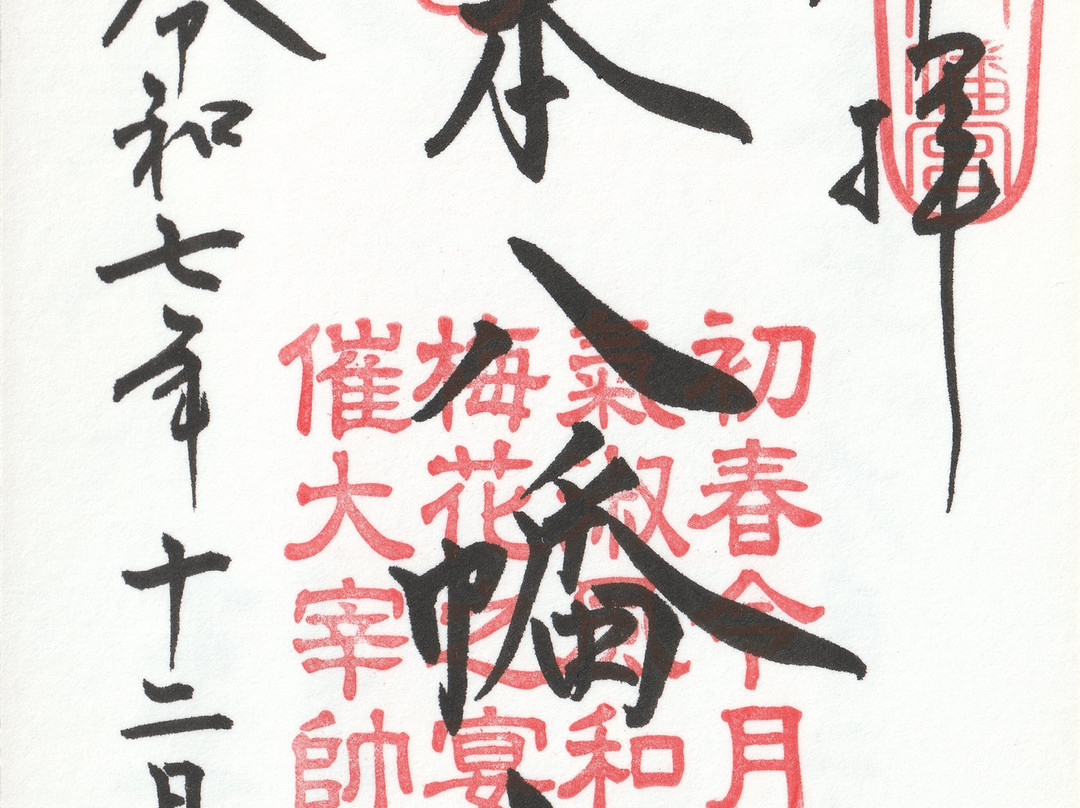 拝
幡宮
本八幡
初春令月
氣淑風和
梅花之宴
催大宰帥
令和七年十二月